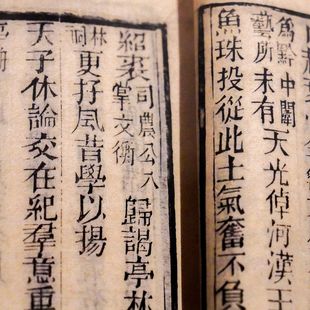 為點中闈
藝所未有
天光倬河漢王
魚珠投從此士氣奮不負
紹裘
司農公入
掌文衡
歸謁亭林
林
祠
更抒風昔學以揚
天子休論交在紀羣意重